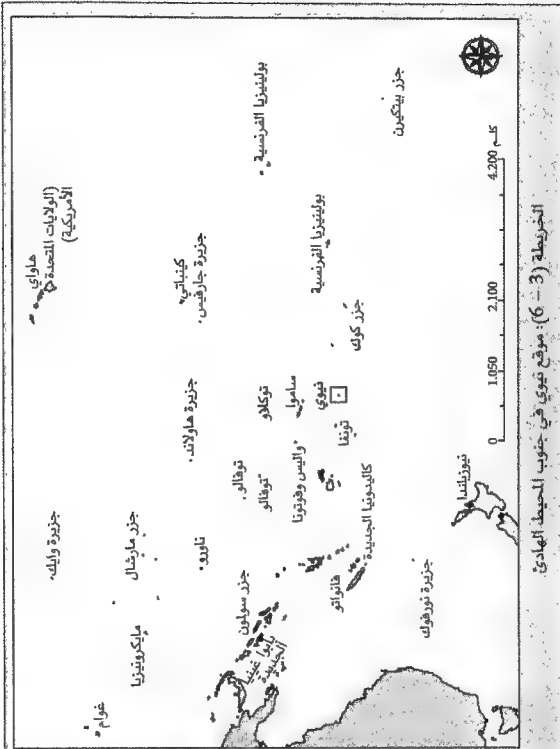 هاواي
(الولايات المتحدة
الأمريكية)
بولينيزيا الفرنسية
جزر بيتكيرن
كيتباتي
جزيرة جارفيس
بولينيزيا الفرنسية
جزر كوك
جزيرة هاولاند
توكلاو
ساموا
نيوي
تونغا
جزيرة وايك
جزر مارشال
ناورو
توفالو
توفالو
واليس وفوتونا
كاليدونيا الجديدة
فانواتو
نيوزيلندا
جزيرة نورفوك
جزر سولون
بابوا غينيا
الجديدة
مايكرونيزيا
غوام
0 1.050 2.100 4.200 كلم
الخريطة (3 – 6): موقع نيوي في جنوب المحيط الهادئ